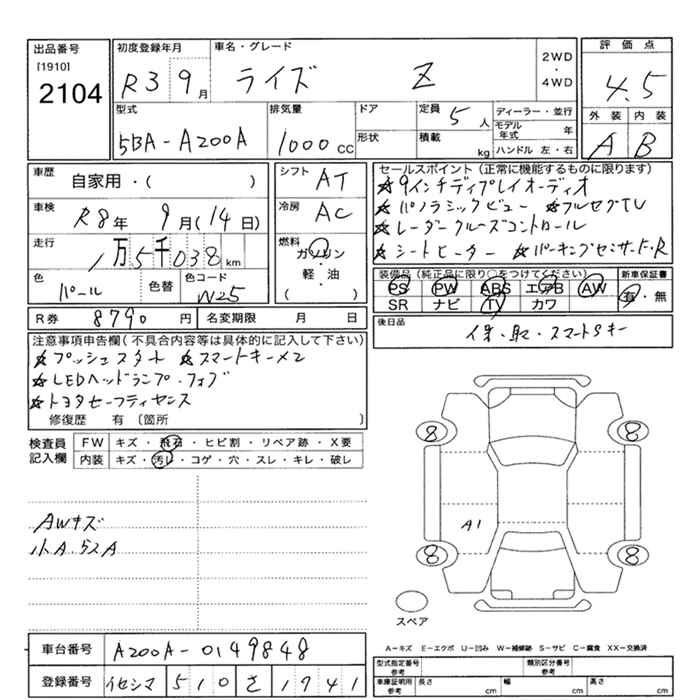 出品番号
[1910]
2104
初度登録年月
R3 9月
車名・グレード
ライズ Z
2WD
・
4WD
評価点
4.5
外装 内装
A B
型式
5BA-A200A
排気量
1000 CC
ドア
形状
定員 5人
積載 kg
ディーラー・並行
モデル年式 年
ハンドル 左・右
車歴
自家用・( )
車検
R8年 9月(14日)
走行
1万5千038 km
色
パール
色替
色コード
W25
シフト AT
冷房 AC
燃料
ガソリン
・
軽・油
( )
R券 8790円
名変期限 月 日
セールスポイント(正常に機能するものに限ります)
☆9インチディプレイオーディオ
☆パノラミックビュー ☆フルセグTV
☆レーダークルーズコントロール
☆シートヒーター ☆パーキングセンサF・R
装備品(純正品に限り○をつけてください)
PS PW ABS エアB AW
SR ナビ TV カワ
新車保証書
有・無
後日品
保・取・スマートSキー
注意事項申告欄(不具合内容等は具体的に記入して下さい)
☆プッシュスタート ☆スマートキー×2
☆LEDヘッドランプ・フォグ
☆トヨタセーフティセンス
修復歴 有 〔箇所 〕
検査員記入欄
FW キズ・飛石・ヒビ割・リペア跡・X要
内装 キズ・汚レ・コゲ・穴・スレ・キレ・破レ
AWキズ
小A.
8 8
A1
8 8
スペア
A-キズ E-エクボ U-凹み W-補修跡 S-サビ C-腐食 XX-交換済
車台番号 A200A-0149848
登録番号 イセシマ 510 さ 1741
型式指定番号 参考
類別区分番号 参考
車庫証明用 参考
長さ cm 幅 cm 高さ cm